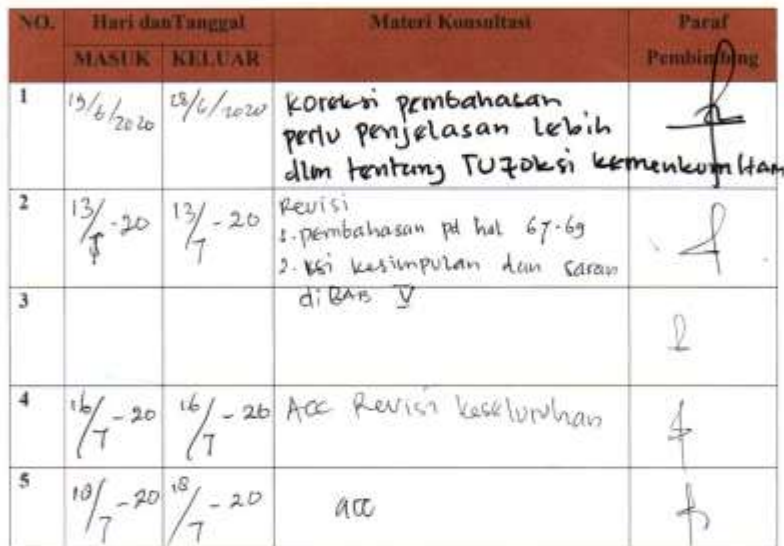 NO. Hari dan Tanggal Materi Konsultasi Paraf
MASUK KELUAR Pembimbing
1 19/6/2020 28/6/2020 Koreksi pembahasan
perlu penjelasan lebih
dlm tentang TUPOKSI kemenkumHam
2 13/7-20 13/7-20 Revisi
1. pembahasan pd hal 67-69
2. isi kesimpulan dan saran
di BAB V
3
4 16/7-20 16/7-20 Acc Revisi keseluruhan
5 18/7-20 18/7-20 acc